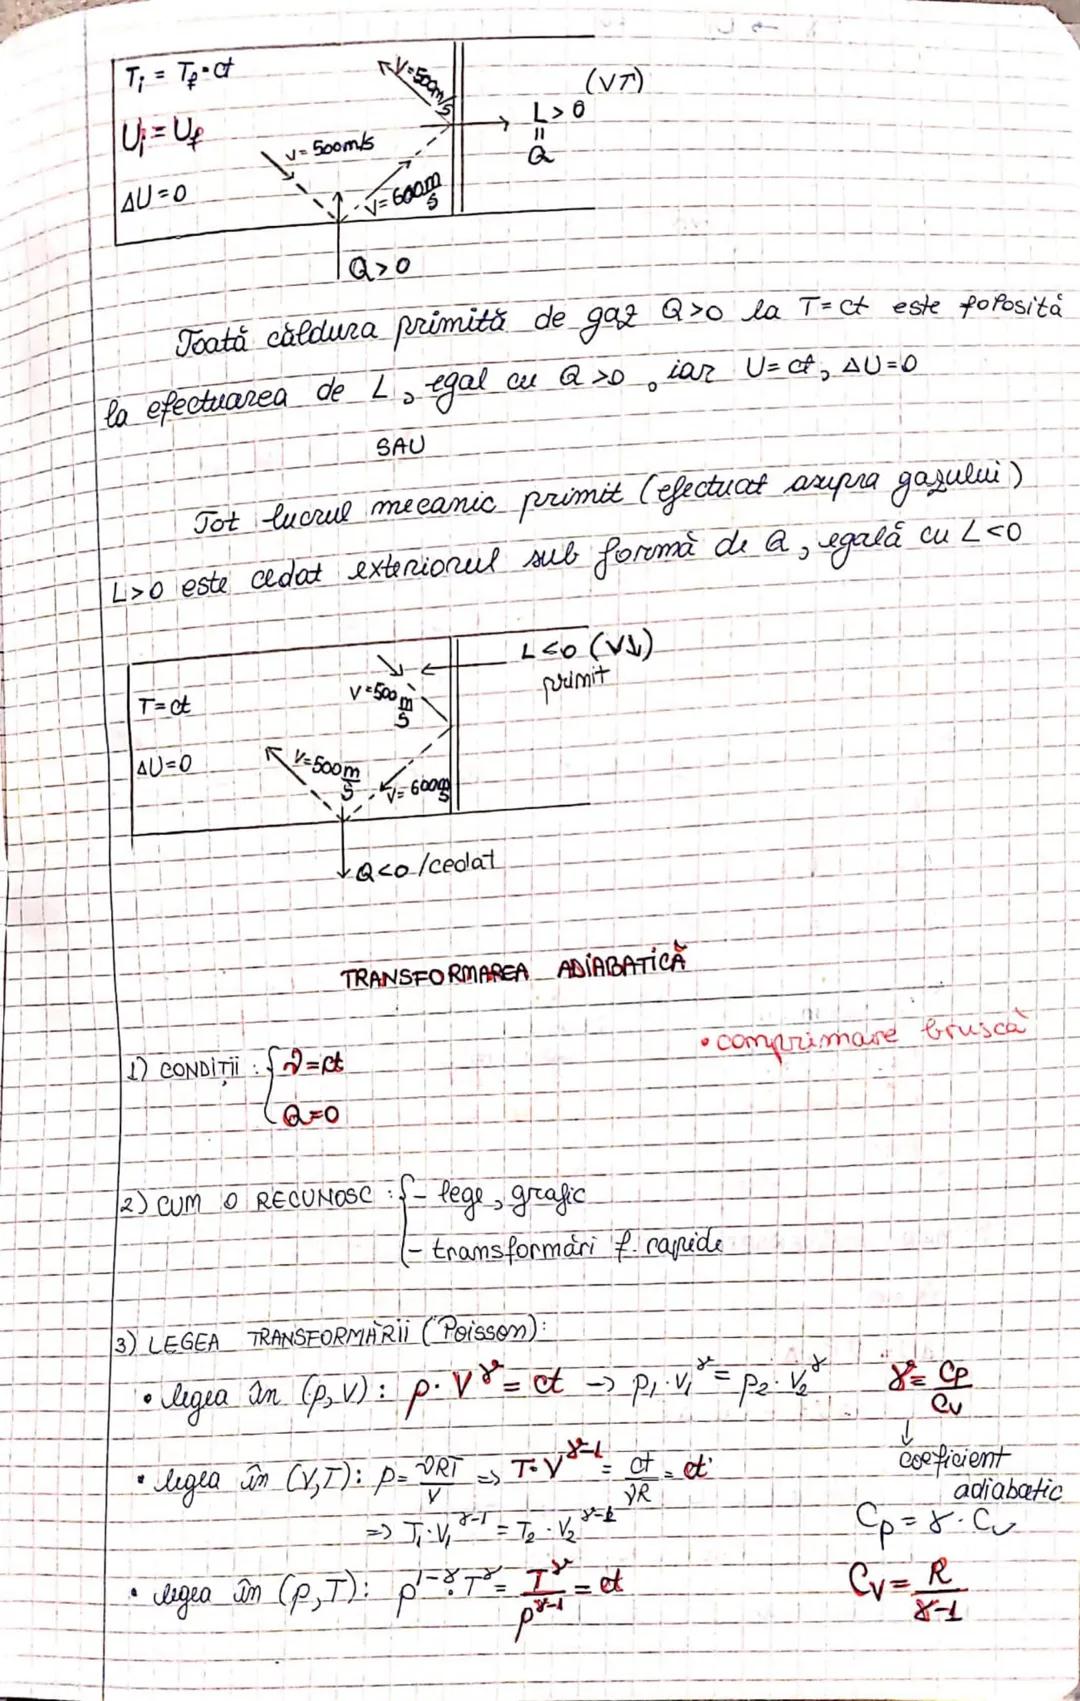 Ti = Tf = ct
V=500m/s
(V↑)
L > 0
=
Q
Ui = Uf
V= 500m/s
ΔU = 0
V= 600 m/s
Q > 0
Toată căldura primită de gaz Q>0 la T=ct este folosită
la efectuarea de L, egal cu Q>0, iar U=ct, ΔU=0
SAU
Tot lucrul mecanic primit (efectuat asupra gazului)
L>0 este cedat exteriorul sub formă de Q, egală cu L<0
L<0 (V↓)
primit
V=500 m/s
T=ct
ΔU=0
V=500 m/s
V= 600 m/s
Q<0/cedat
TRANSFORMAREA ADIABATICĂ
• comprimare bruscă
1) CONDIȚII : { ν=ct
Q=0
2) CUM O RECUNOSC : { - lege, grafic
- transformări f. rapide
3) LEGEA TRANSFORMĂRII (Poisson):
• legea în (p,V): p·V^γ = ct → p1·V1^γ = p2·V2^γ
γ = Cp/Cv
↓
coeficient
adiabatic
• legea în (V,T): p= νRT/V ⇒ T·V^γ-1 = ct/νR = ct'
⇒ T1·V1^γ-1 = T2·V2^γ-1
Cp = γ·Cv
• legea în (p,T): p^1-γ·T^γ = T^γ/p^γ-1 = ct
Cv = R/γ-1